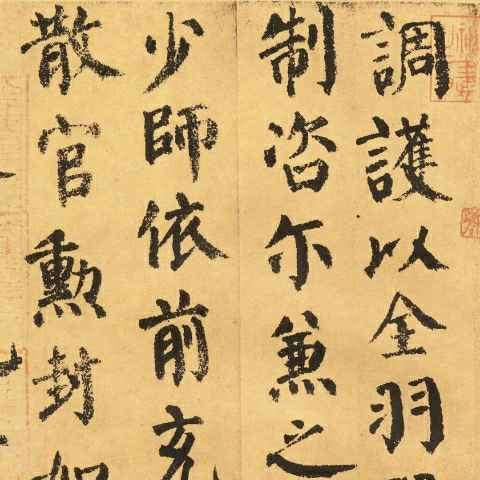 調護以全羽
制咨尓兼之
少師依前充
散官勳封如